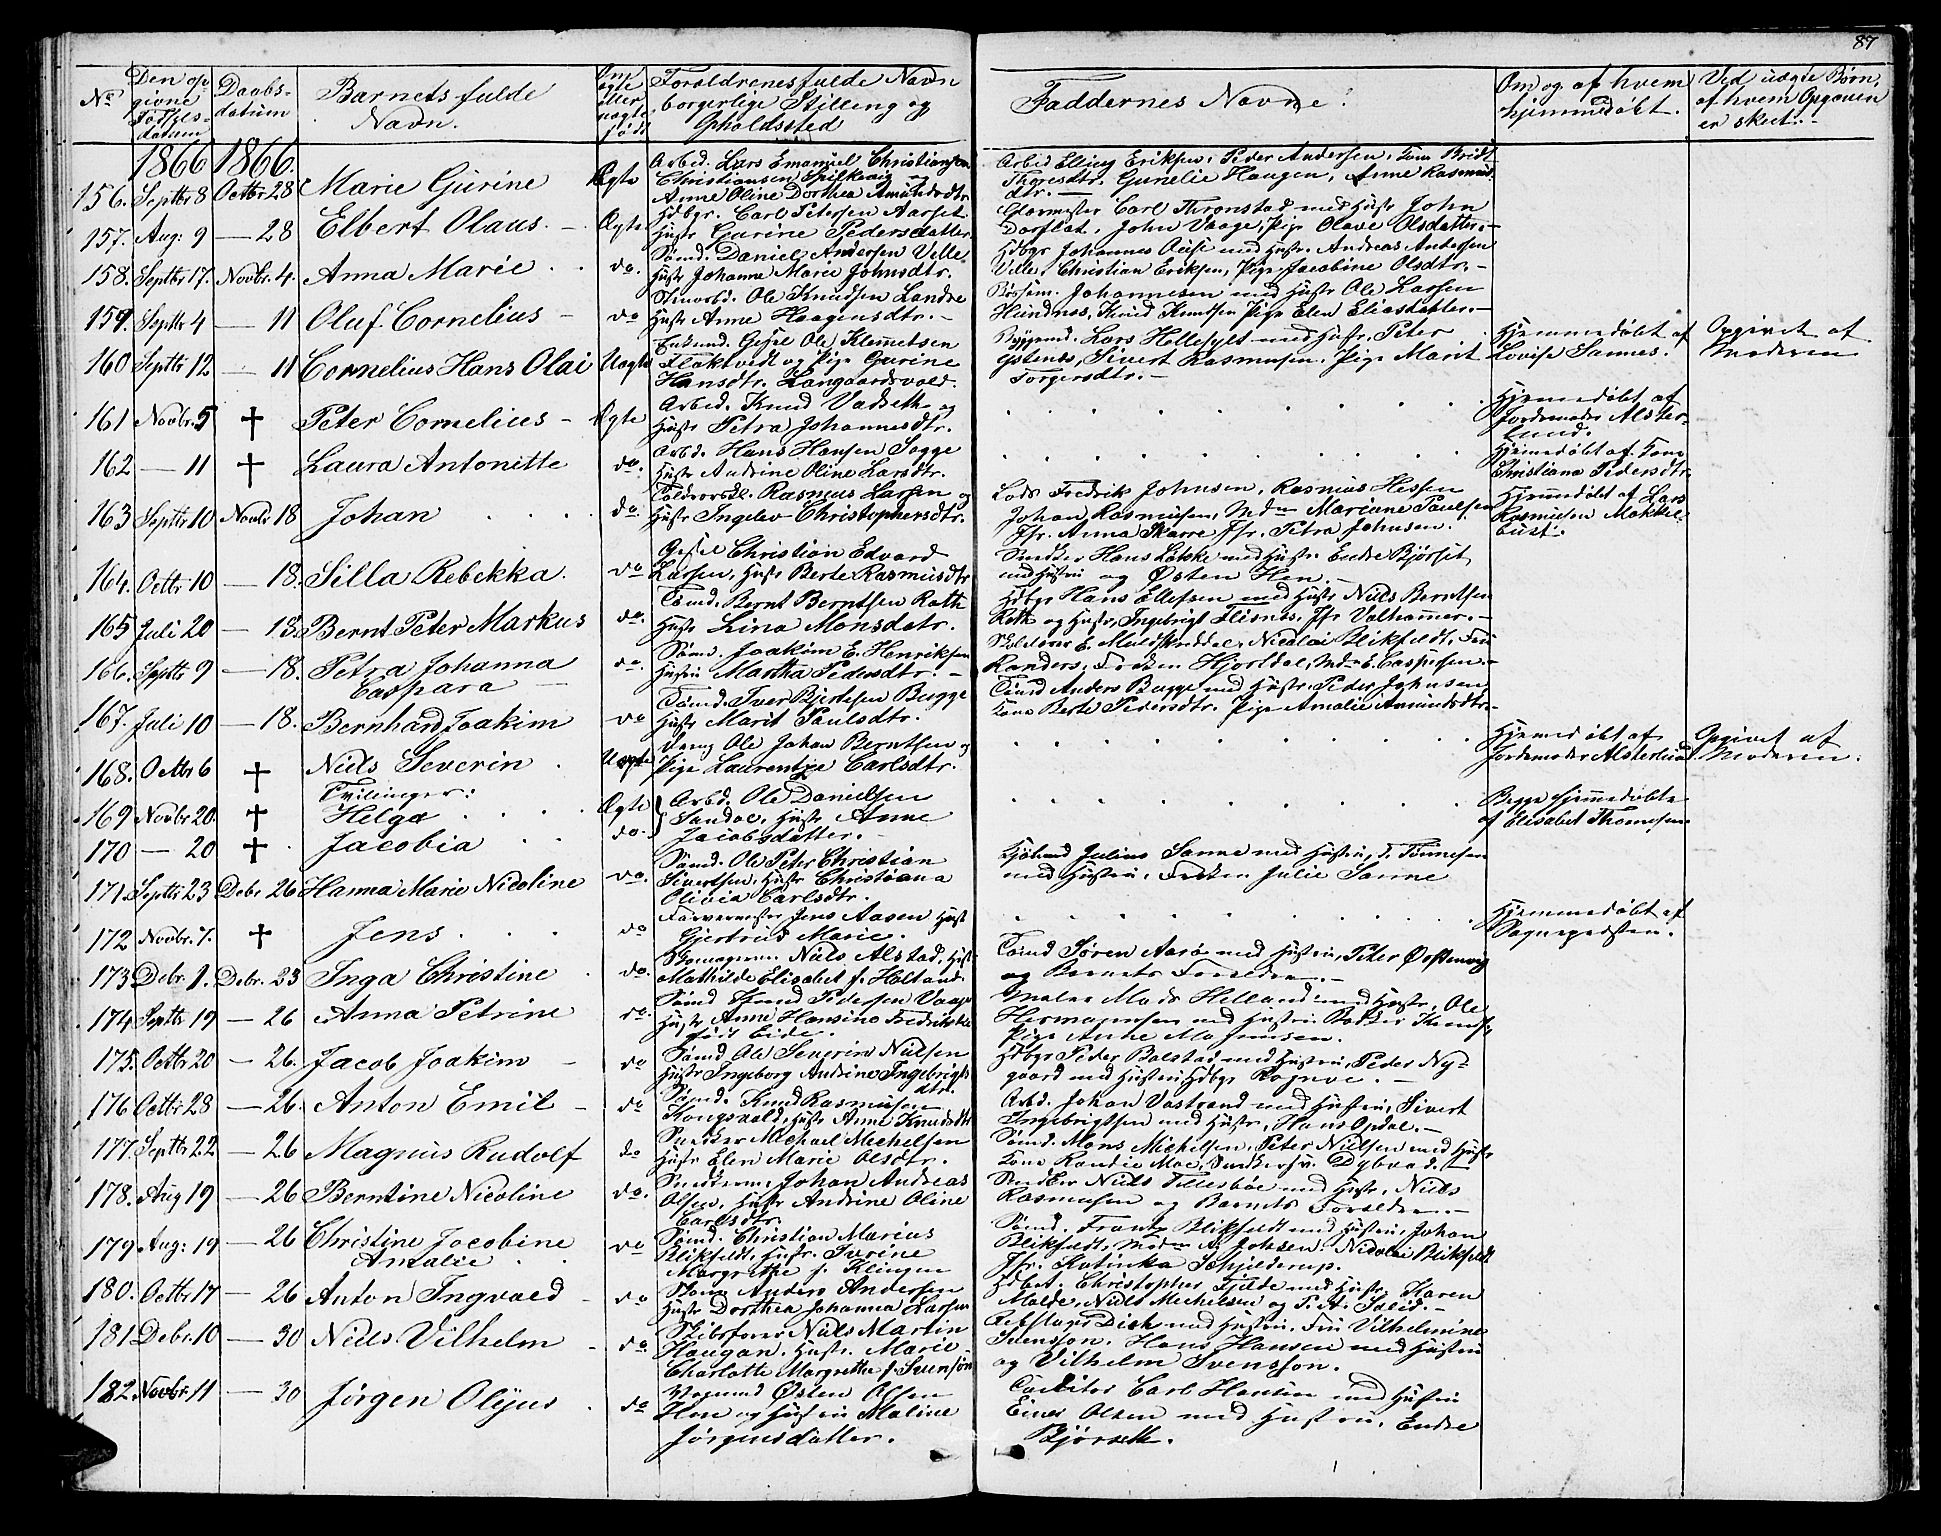 87
No
Den opgivne Fødselsdatum
Daabsdatum
Barnets fulde Navn.
Om ægte eller uægte født
Forældrenes fulde Navn borgerlige Stilling og Opholdssted
Faddernes Navne.
Om og af hvem hjemmedøbt.
Ved uægte Børn, af hvem Opgaven er skeet.
1866 1866.
156. Septbr 8 Octbr 28 Marie Gurine Ægte Arbed. Lars Emanuel Christiansen
Christiansen Spilkevig og
Anne Oline Dorthea Amundsdtr
Arbed Elling Eriksen, Peder Andersen, Kone Bridt
Thoresdtr. Gunelie Haugen, Anne Rasmus
dtr. —
157. Aug: 9 — 28 Elbert Olaus. — Ægte Hdbgr. Carl Petersen Aarset.
Hustr Gurine Pedersdatter.
Carl Thronstad med Hustr John
John Vaage, Pige Olave Olsdatter. —
158. Septbr 17. Novbr. 4. Anna Marie do. Sømd. Daniel Andersen Velle
Hustr Johanna Marie Johnsdtr.
Hdbgr Johannes med Hustr. Andreas Andersen
Velle, Christian Eriksen, Pige Jacobine Olsdtr. —
159. Septbr 4 — 11 Oluf Cornelius — do Ole Knudsen Landre
Hustr Anne Haagensdtr. —
Johannesen med Hustr Ole Larsen
Hundnes, Knud Knudsen Pige Elen Eliasdatter. —
160 Septbr 12 — 11 Cornelius Hans Olai Uægte Ole Klemetsen
Flaktvedt og Pige Gurine
Hansdtr. Langaardsvold.
Lars Hellesylt med Hustr. Peter
Sivert Rasmusen, Pige Marit
Torgersdtr. —
Hjemmedøbt af
Lovise Sannes.
Opgivet af
Moderen
161 Novbr. 5 † Peter Cornelius — Ægte Arbed. Knud Vadseth og
Hustr Petra Johannesdtr.
Hjemmedøbt af
Jordemoder Alster-
lund.
162 — 11 † Laura Antonitte do. Arbd. Hans Hansen Sogge
Hustr Andrine Oline Larsdtr.
Hjemmedøbt af Kone
Christiana Pedersdtr
163 Septbr 10 Novbr 18 Johan do. Rasmus Larsen og
Hustr Ingelev Christophersdtr.
Lods Fredrik Johnsen, Rasmus Hessen
Johan Rasmusen, Mdm Mariane Paulsen
Jfr. Anna Skarre Jfr. Petra Johnsen.
Hjemmedøbt af Lars
Rasmusen
164. Octbr 10 — 18. Silla Rebekka. do Christian Edvard
Larsen, Hustr Berte Rasmusdtr
Hans med Hustr. Endre Bjørset
med Hustru og Østen Hen. —
165 Juli 20 — 18. Bernt Peter Markus do. Tømd. Bernt Berntsen Roth
Hustr Lina Monsdatr.
Hdbgr Hans Ellefsen med Hustr Niels Berntsen
Roth og Hustr, Ingebrigt Flisnes, Jfr Valhammer. —
166. Septbr 9 — 18. Petra Johanna
Caspara — do. Joakim E. Henriksen
Hustru Martha Pedersdtr. —
Nicolai Blikfeldt, Fru
Randers, Frøken Hjorddal, Mdm E. Caspersen. —
167. Juli 10 — 18. Bernhard Joakim do Tømd. Iver Bjertesen Bugge
Hustr Marit Paulsdtr.
Tømd Anders Bugge med Hustr. Peder Johnsen,
Kone Berte Pedersdtr. Pige Amalie Amundsdtr. —
168. Octbr 6 † Niels Severin Uægte Ole Johan Berntsen og
Pige Laurentze Carlsdtr.
Hjemmedøbt af
Jordemoder Alsterlund.
Opgivet af
Moderen.
Tvilinger:
169 Novbr 20. † Helga Ægte Arbd. Ole Danielsen
170 — 20 † Jacobia do. Sandøe, Hustr Anne
Jacobsdatter. —
Begge hjemmedøbte
af Elisabet Thomesen.
171. Septbr 23 Debr. 26 Hanna Marie Nicoline do. Sømd. Ole Peter Christian
Sivertsen, Hustr Christiana
Olivia Carlsdtr.
Julius Sanne med Hustru, Tønnesen
med Hustru, Frøken Julie Sanne
172 Novbr. 7. † Jens do Farvermester Jens Aasen Hust
Gjertrud Marie.
Hjemmedøbt af
Sognepresten.
173 Debr. 1. Debr. 23 Inga Christine do. Niels Alstad, Hust
Mathilde Elisabet f. Holland
Tømd Søren Aarøe med Hustru, Peter
og Barnets Forældre. —
174 Septbr 19 — 26 Anna Petrine do. Sømd Knud Pedersen Vaage
Hustr Anne Hansine Fredrikke
født Eide.
Maler Mads Helland med Hustr, Ole
Hermansen med Hustru
Pige Anne
175. Octbr 20 — 26. Jacob Joakim — do Tømd Ole Severin Nielsen
Hustr Ingeborg Andrine Ingebrigts
dtr.
Hdbgr Peder Balstad med Hustru, Peder Ny-
gaard med Hustru Hdbgr Rogne. —
176 Octbr 28 — 26. Anton Emil — do Sømd. Knud Rasmusen
Kongsvold, Hustr Anne Knudsdtr
Arbd. Johan Vastrand med Hustru, Sivert
Ingebrigtsen med Hustr, Hans Opdal. —
177. Septbr 22 — 26 Magnus Rudolf do Snedker Michael Michelsen
Hustr Elen Marie Olsdtr.
Sømd. Mons Michelsen, Peter Nielsen med Hustr
Kone Randie Moe, Snedkersv. Dybvad. —
178. Aug 19 — 26 Berntine Nicoline do. Johan Andreas
Olsen, Hustr Andrine Oline
Carlsdtr.
Niels med Hustr. Niels
Rasmusen og Barnets Forældre. —
179 Aug: 19 — 26 Christine Jacobine
Amalie do Sømd. Christian Marius
Blikfeldt, Hustr. Iverine
Margrethe f. Klingen
Sømd. Frantz Blikfeldt med Hustru, Johan
Blikfeldt, Nicolai Blikfeldt
Jfr. Katinka Schjelderup.
180. Octbr 17 — 26 Anton Ingvald — do Anders Andersen
Hustr Dorthea Johanna Larsen
Christopher Fjelde med Hustr, Karen
Molde, Niels Michelsen og P. A. —
181 Debr. 10 — 30 Niels Vilhelm — do Skibsfører Niels Martin
Haugan. Hustr. Marie
Charlotte Margrethe f. Svensøn
Rebslager Dick med Hustru, Fru Vilhelmine
Svensson, Hans Hansen med Hustru
og Vilhelm Svensson.
182. Novbr. 11 — 30 Jørgen Olejus do Vognmd Østen Olsen
Hen og Hustru Maline
Jørgensdatter.
Carl Hansen med Hustru
Einer Olsen med Hustru, Endre
Bjørseth.